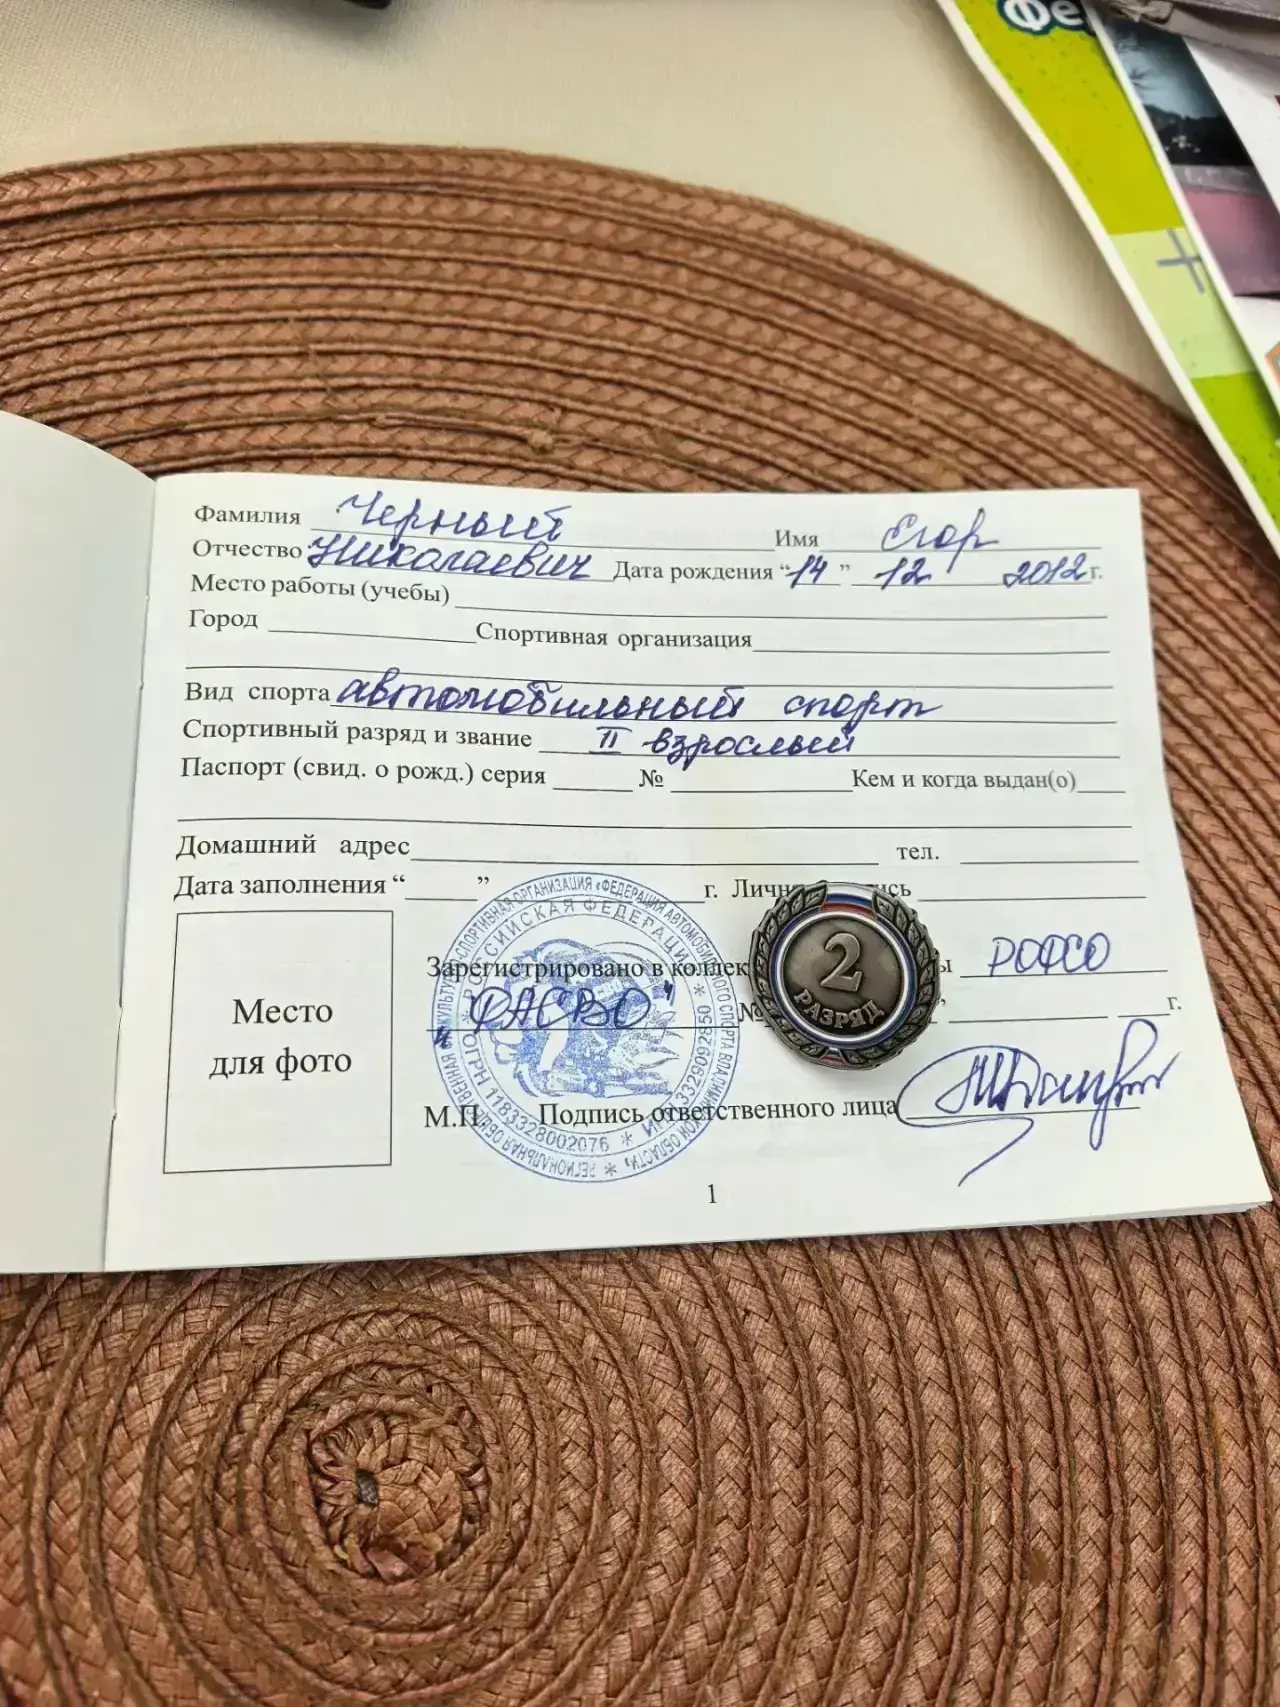 Фе
Фамилия Черный Имя Егор
Отчество Николаевич Дата рождения “14” 12 2012 г.
Место работы (учебы)
Город Спортивная организация
Вид спорта автомобильный спорт
Спортивный разряд и звание II взрослый
Паспорт (свид. о рожд.) серия № Кем и когда выдан(о)
Домашний адрес тел.
Дата заполнения “ ” г. Личн ись
Зарегистрировано в коллек ы РОФСО
"ФАСВО" № ” г.
2
РАЗРЯД
Место
для фото
М.П. Подпись ответственного лица
РОССИЙСКАЯ ФЕДЕРАЦИЯ * ИНН 3329092850 * ОГРН 1183328002076 *
СПОРТИВНАЯ ОРГАНИЗАЦИЯ «ФЕДЕРАЦИЯ АВТОМОБИЛЬНОГО СПОРТА ВЛАДИМИРСКОЙ ОБЛАСТИ» * РЕГИОНАЛЬНАЯ ОБЩЕСТВЕННАЯ
1